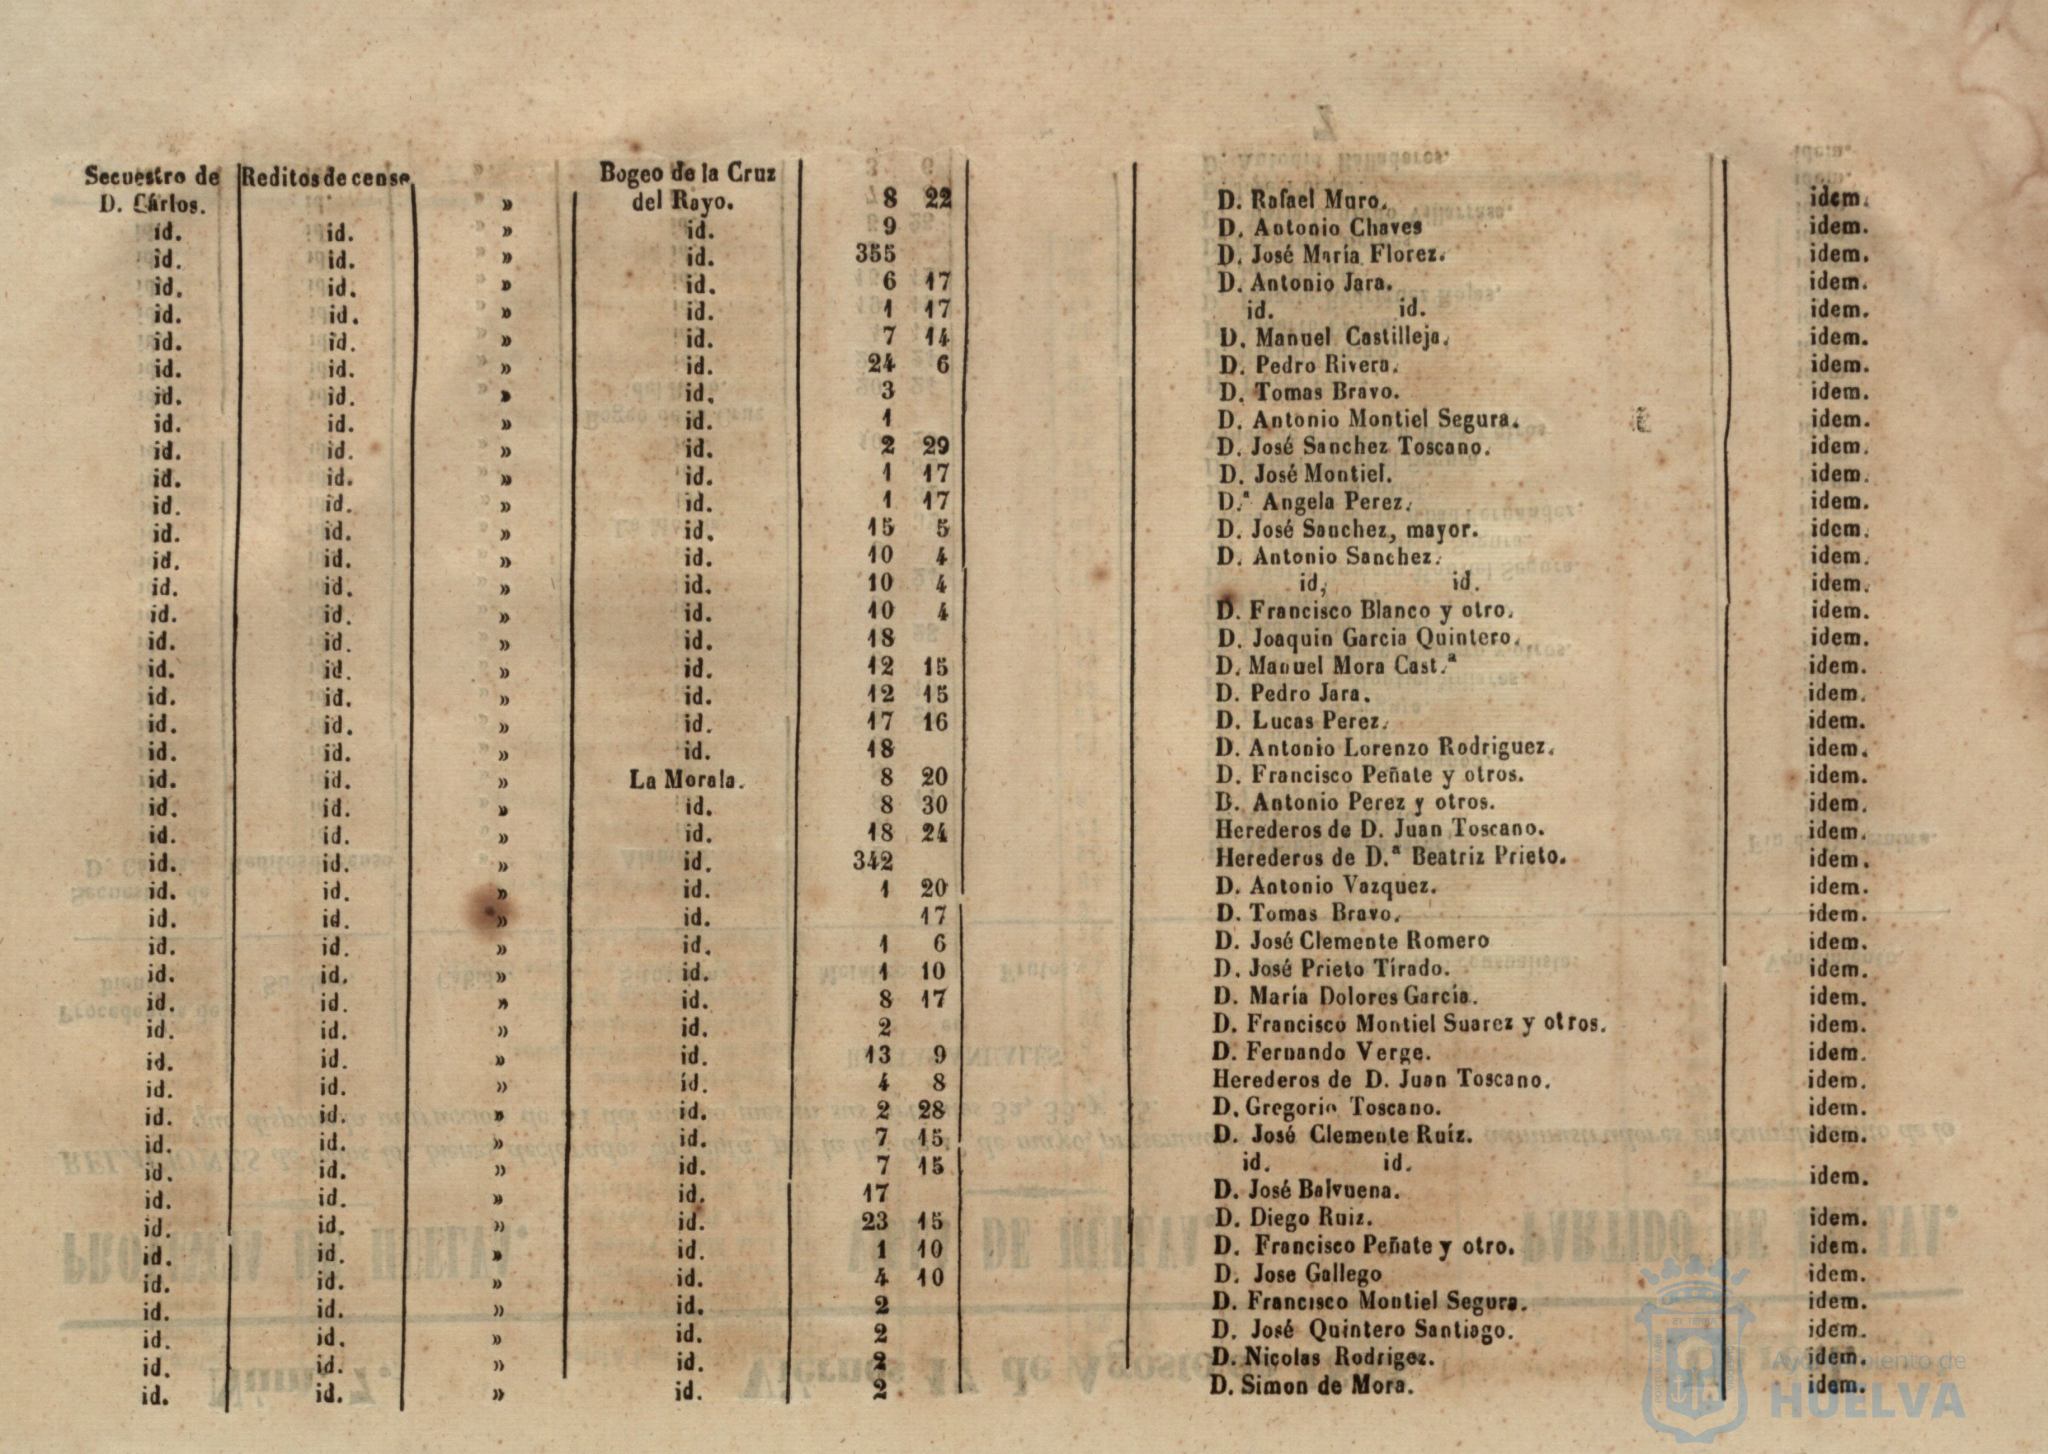 Secuestro de Reditos de censo Bogeo de la Cruz
D. Cárlos. » del Rayo. 8 22 D. Rafael Muro. idem.
id. id. » id. 9 D. Antonio Chaves idem.
id. id. » id. 355 D. José María Florez. idem.
id. id. » id. 6 17 D. Antonio Jara. idem.
id. id. » id. 1 17 id. id. idem.
id. id. » id. 7 14 D. Manuel Castilleja. idem.
id. id. » id. 24 6 D. Pedro Rivera. idem.
id. id. » id. 3 D. Tomas Bravo. idem.
id. id. » id. 1 D. Antonio Montiel Segura. idem.
id. id. » id. 2 29 D. José Sanchez Toscano. idem.
id. id. » id. 1 17 D. José Montiel. idem.
id. id. » id. 1 17 D.ª Angela Perez. idem.
id. id. » id. 15 5 D. José Sanchez, mayor. idem.
id. id. » id. 10 4 D. Antonio Sanchez. idem.
id. id. » id. 10 4 id, id. idem.
id. id. » id. 10 4 D. Francisco Blanco y otro. idem.
id. id. » id. 18 D. Joaquin Garcia Quintero. idem.
id. id. » id. 12 15 D. Manuel Mora Cast.ª idem.
id. id. » id. 12 15 D. Pedro Jara. idem.
id. id. » id. 17 16 D. Lucas Perez. idem.
id. id. » id. 18 D. Antonio Lorenzo Rodriguez. idem.
id. id. » La Morala. 8 20 D. Francisco Peñate y otros. idem.
id. id. » id. 8 30 D. Antonio Perez y otros. idem.
id. id. » id. 18 24 Herederos de D. Juan Toscano. idem.
id. id. » id. 342 Herederos de D.ª Beatriz Prieto. idem.
id. id. » id. 1 20 D. Antonio Vazquez. idem.
id. id. » id. 17 D. Tomas Bravo. idem.
id. id. » id. 1 6 D. José Clemente Romero idem.
id. id. » id. 1 10 D. José Prieto Tirado. idem.
id. id. » id. 8 17 D. María Dolores García. idem.
id. id. » id. 2 D. Francisco Montiel Suarez y otros. idem.
id. id. » id. 13 9 D. Fernando Verge. idem.
id. id. » id. 4 8 Herederos de D. Juan Toscano. idem.
id. id. » id. 2 28 D. Gregorio Toscano. idem.
id. id. » id. 7 15 D. José Clemente Ruiz. idem.
id. id. » id. 7 15 id. id. idem.
id. id. » id. 17 D. José Balvuena.
id. id. » id. 23 15 D. Diego Ruiz. idem.
id. id. » id. 1 10 D. Francisco Peñate y otro. idem.
id. id. » id. 4 10 D. Jose Gallego idem.
id. id. » id. 2 D. Francisco Montiel Segura. idem.
id. id. » id. 2 D. José Quintero Santiago. idem.
id. id. » id. 2 D. Nicolas Rodrigez. idem.
id. id. » id. 2 D. Simon de Mora. idem.
Ayuntamiento de
HUELVA